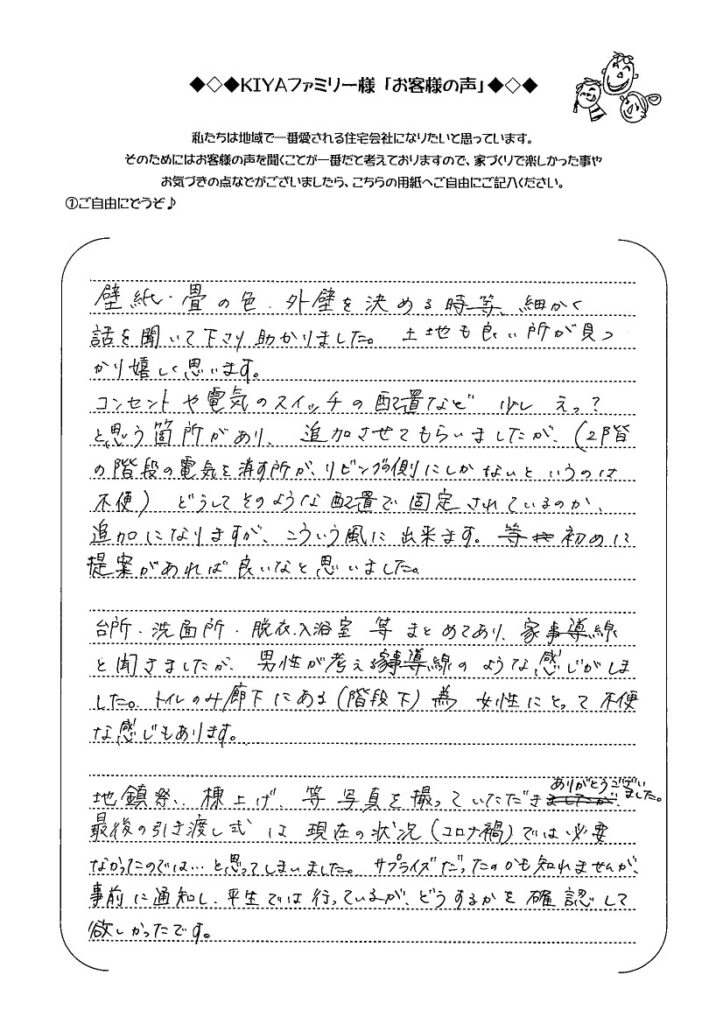 ◆◇◆KIYAファミリー様「お客様の声」◆◇◆
私たちは地域で一番愛される住宅会社になりたいと思っています。
そのためにはお客様の声を聞くことが一番だと考えておりますので、家づくりで楽しかった事や
お気づきの点などがございましたら、こちらの用紙へご自由にご記入ください。
①ご自由にどうぞ♪
壁紙・畳の色、外壁を決める時等、細かく
話を聞いて下さり助かりました。土地も良い所が見つ
かり嬉しく思います。
コンセントや電気のスイッチの配置など 少し えっ?
と思う箇所があり、追加させてもらいましたが、(2階
の階段の電気を消す所が、リビングの側にしかないというのは
不便) どうしてそのような配置で固定されているのか、
追加になりますが、こういう風に出来ます。等 初めに
提案があれば良いなと思いました。
台所・洗面所・脱衣、入浴室 等 まとめてあり、家事導線
と聞きましたが、男性が考える家事導線のような感じがしま
した。トイレのみ廊下にある(階段下)為 女性にとって不便
な感じもあります。
地鎮祭、棟上げ、等 写真を撮っていただきありがとうございました。
最後の引き渡し式は現在の状況(コロナ禍)では必要
なかったのでは…と思ってしまいました。サプライズだったのかも知れませんが、
事前に通知し、平生では行っているが、どうするかを確認して
欲しかったです。